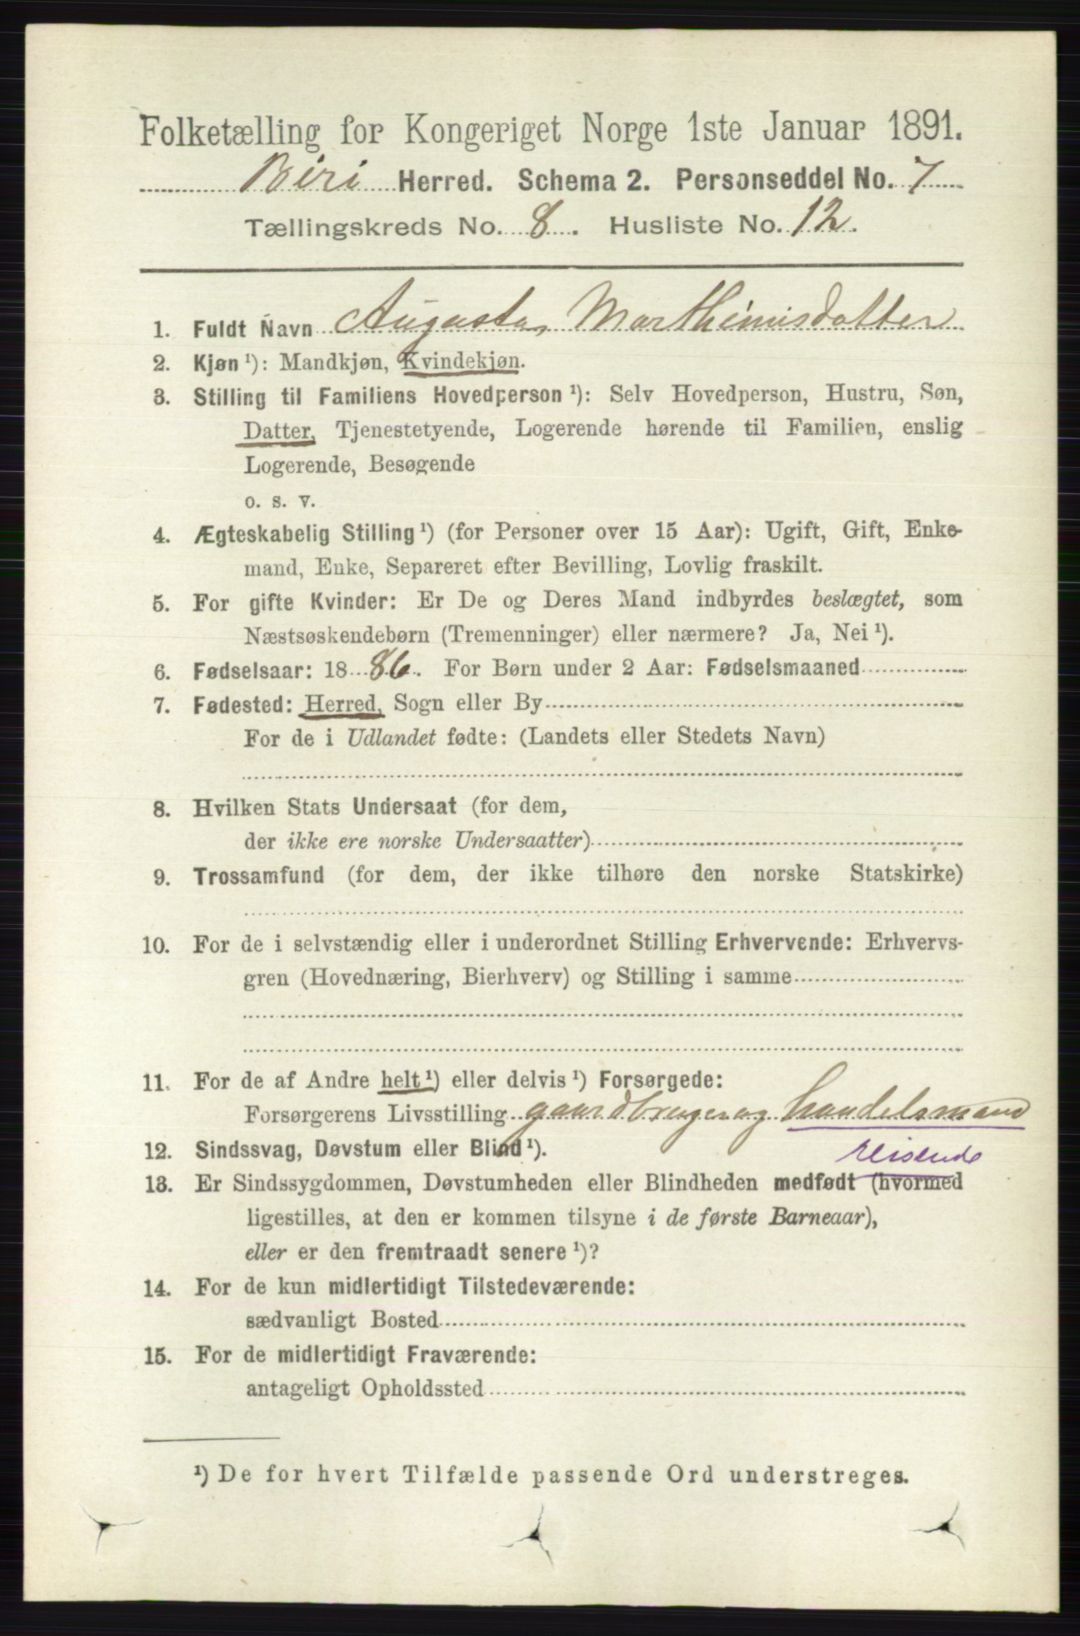 Folketælling for Kongeriget Norge 1ste Januar 1891.
Biri Herred. Schema 2. Personseddel No. 7
Tællingskreds No. 8. Husliste No. 12.
1. Fuldt Navn Augusta Marthinusdatter
2. Kjøn ¹): Mandkjøn, Kvindekjøn.
3. Stilling til Familiens Hovedperson ¹): Selv Hovedperson, Hustru, Søn,
Datter, Tjenestetyende, Logerende hørende til Familien, enslig
Logerende, Besøgende
o. s. v.
4. Ægteskabelig Stilling ¹) (for Personer over 15 Aar): Ugift, Gift, Enke-
mand, Enke, Separeret efter Bevilling, Lovlig fraskilt.
5. For gifte Kvinder: Er De og Deres Mand indbyrdes beslægtet, som
Næstsøskendebørn (Tremenninger) eller nærmere? Ja, Nei ¹).
6. Fødselsaar: 1886. For Børn under 2 Aar: Fødselsmaaned
7. Fødested: Herred, Sogn eller By
For de i Udlandet fødte: (Landets eller Stedets Navn)
8. Hvilken Stats Undersaat (for dem,
der ikke ere norske Undersaatter)
9. Trossamfund (for dem, der ikke tilhøre den norske Statskirke)
10. For de i selvstændig eller i underordnet Stilling Erhvervende: Erhvervs-
gren (Hovednæring, Bierhverv) og Stilling i samme
11. For de af Andre helt ¹) eller delvis ¹) Forsørgede:
Forsørgerens Livsstilling gaardbruger og handelsmand
reisende
12. Sindssvag, Døvstum eller Blind ¹).
13. Er Sindssygdommen, Døvstumheden eller Blindheden medfødt (hvormed
ligestilles, at den er kommen tilsyne i de første Barneaar),
eller er den fremtraadt senere ¹)?
14. For de kun midlertidigt Tilstedeværende:
sædvanligt Bosted
15. For de midlertidigt Fraværende:
antageligt Opholdssted
¹) De for hvert Tilfælde passende Ord understreges.